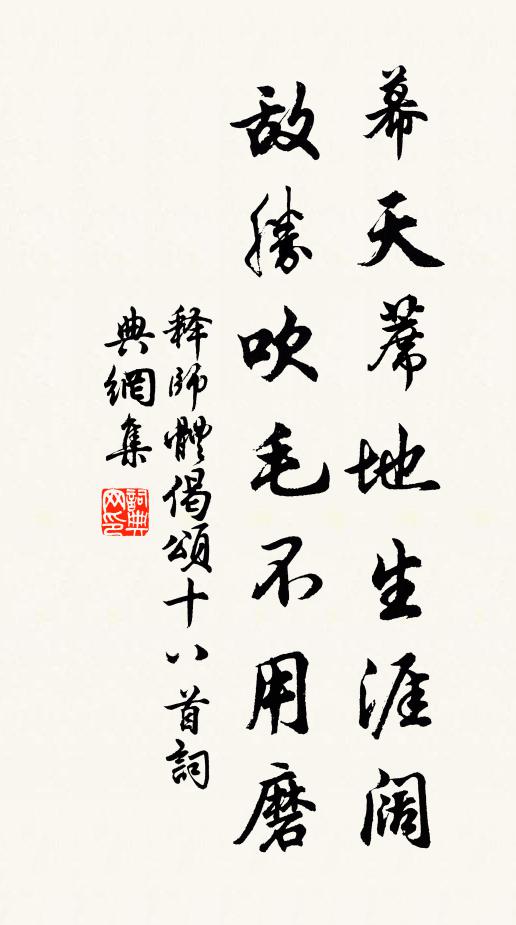 幕天蓆地生涯阔
敌勝吹毛不用磨
释師體偈頌十八首詞
典網集
詞典网印